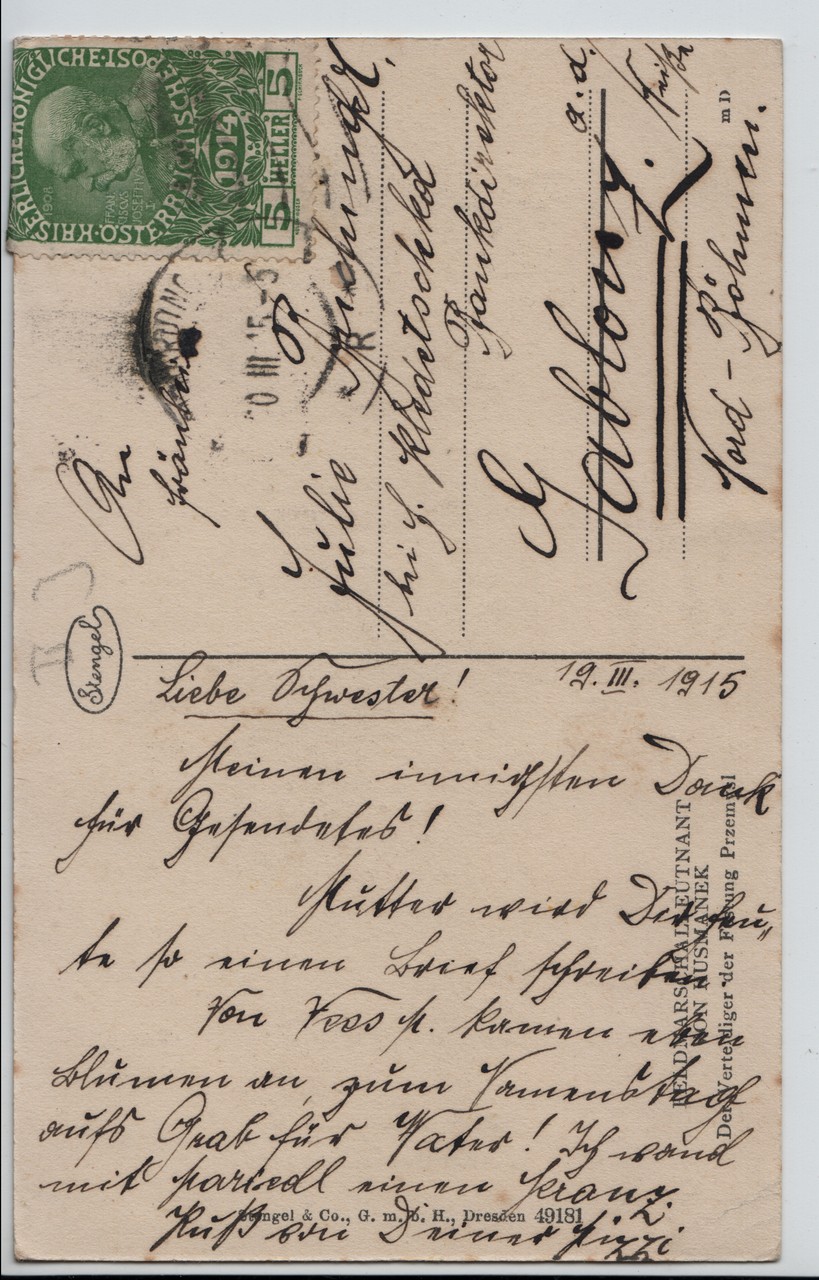 Liebe Schwester! 19. III. 1915
Meinen innigsten Dank
für Gesendetes!
Mutter wird Dir heu„
te so einen Brief schreiben
Von M. kamen eben
Blumen an, zum Namenstag
aufs Grab für Vater! Ich wand
mit Mariedl einen Kranz.
Kuß von Deiner
Stengel & Co., G. m. b. H., Dresden 49181
FELDMARSCHALLEUTNANT
VON KUSMANEK
Der Verteidiger der Festung Przemysl
Stengel
II
An
Fräulein
Julie
bei H. Kledetschka
Bankdirektor
Gablonz
a. d. Neiße
Nord-Böhmen.
m D
KAISERLICHE KÖNIGLICHE ÖSTERREICHISCHE POST
1908
FRANCISCUS JOSEPH I
1914
5 HELLER 5
III 15-5